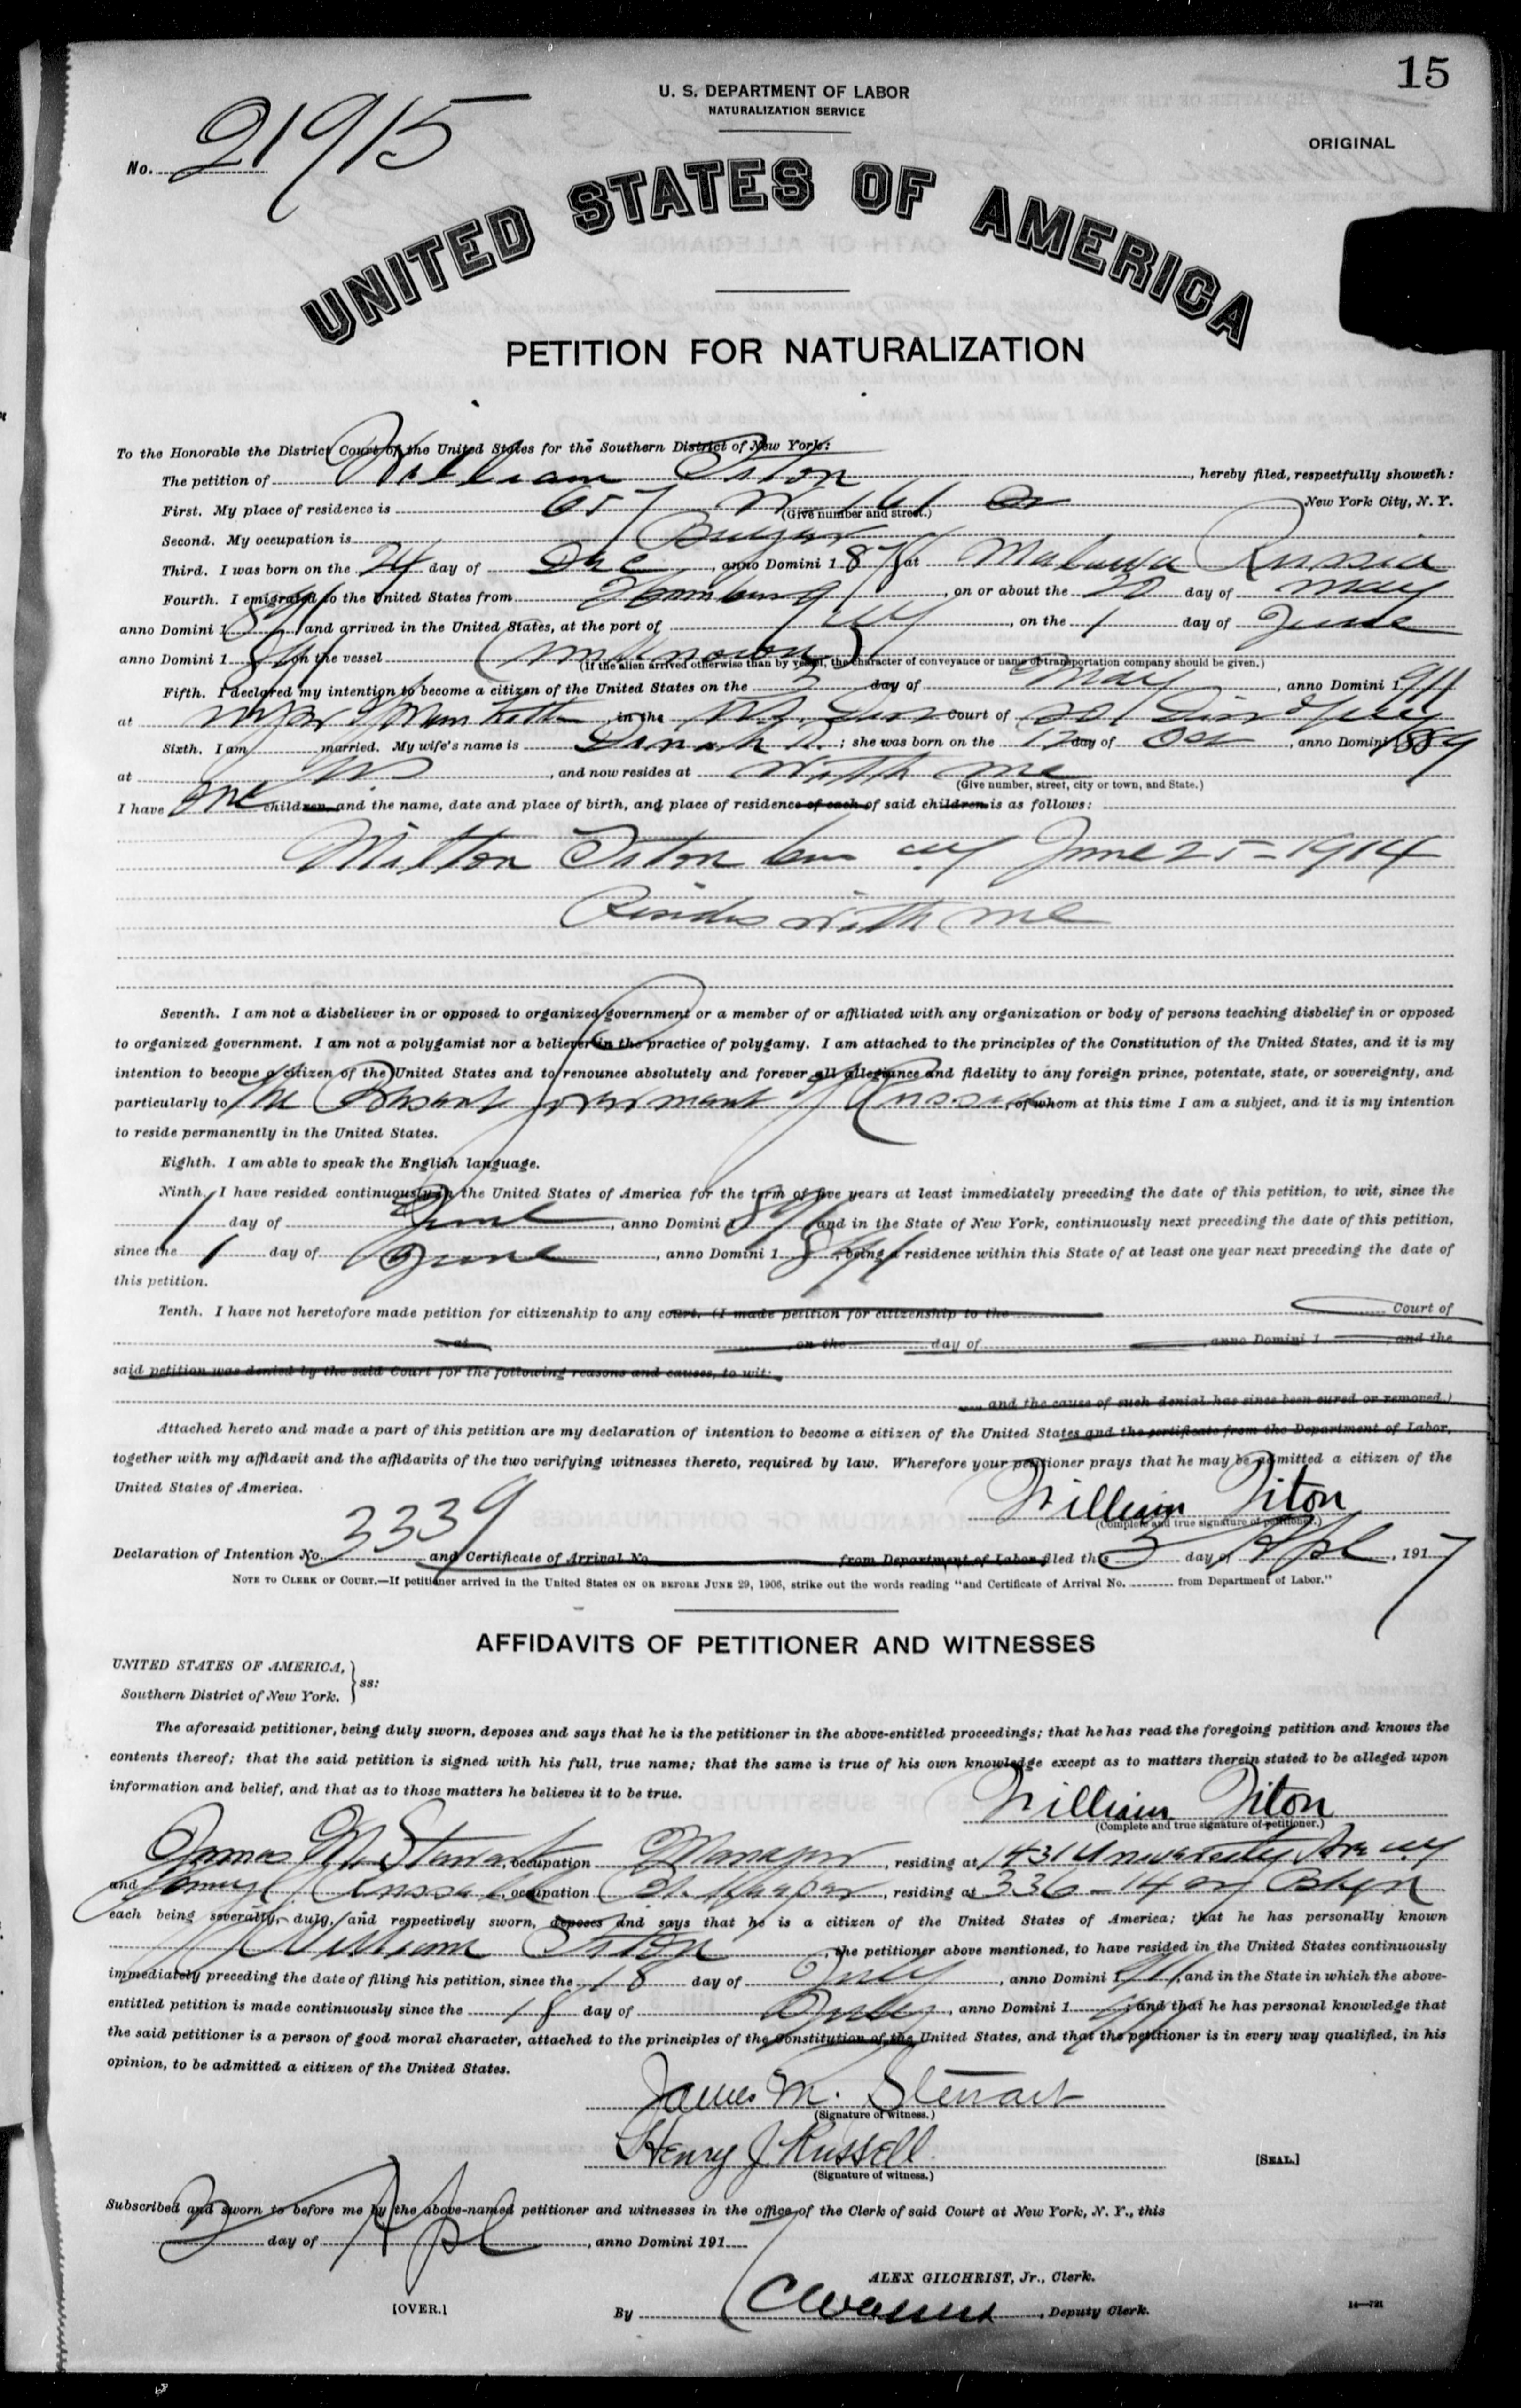 15
U. S. DEPARTMENT OF LABOR
NATURALIZATION SERVICE
ORIGINAL
No. 21915
UNITED STATES OF AMERICA
PETITION FOR NATURALIZATION
To the Honorable the District Court of the United States for the Southern District of New York:
The petition of William Titon, hereby filed, respectfully showeth:
First. My place of residence is 657 W 161 St New York City, N. Y.
(Give number and street.)
Second. My occupation is Buyer
Third. I was born on the 24 day of Dec, anno Domini 187 at Russia
Fourth. I emigrated to the United States from Hamburg, on or about the 20 day of May
anno Domini 1891 and arrived in the United States, at the port of NY, on the 1 day of June
anno Domini 1891 on the vessel (unknown)
(If the alien arrived otherwise than by vessel, the character of conveyance or name of transportation company should be given.)
Fifth. I declared my intention to become a citizen of the United States on the 3 day of May, anno Domini 1911
at , in the Court of
Sixth. I am married. My wife's name is Dinah R.; she was born on the 12 day of Oct, anno Domini 1889
at , and now resides at with me
(Give number, street, city or town, and State.)
I have one children and the name, date and place of birth, and place of residence of each of said children is as follows:
Milton Titon born NY June 25-1914
Resides with me
Seventh. I am not a disbeliever in or opposed to organized government or a member of or affiliated with any organization or body of persons teaching disbelief in or opposed
to organized government. I am not a polygamist nor a believer in the practice of polygamy. I am attached to the principles of the Constitution of the United States, and it is my
intention to become a citizen of the United States and to renounce absolutely and forever all allegiance and fidelity to any foreign prince, potentate, state, or sovereignty, and
particularly to the Present Government of Russia, of whom at this time I am a subject, and it is my intention
to reside permanently in the United States.
Eighth. I am able to speak the English language.
Ninth. I have resided continuously in the United States of America for the term of five years at least immediately preceding the date of this petition, to wit, since the
1 day of June, anno Domini 1891 and in the State of New York, continuously next preceding the date of this petition,
since the 1 day of June, anno Domini 1891, being a residence within this State of at least one year next preceding the date of
this petition.
Tenth. I have not heretofore made petition for citizenship to any court. (I made petition for citizenship to the Court of
at on the day of , anno Domini 1 , and the
said petition was denied by the said Court for the following reasons and causes, to wit:
and the cause of such denial has since been cured or removed.)
Attached hereto and made a part of this petition are my declaration of intention to become a citizen of the United States and the certificate from the Department of Labor,
together with my affidavit and the affidavits of the two verifying witnesses thereto, required by law. Wherefore your petitioner prays that he may be admitted a citizen of the
United States of America.
William Titon
(Complete and true signature of petitioner.)
Declaration of Intention No. 3339 and Certificate of Arrival No. from Department of Labor filed this 3 day of Apl, 1917
NOTE TO CLERK OF COURT.—If petitioner arrived in the United States ON OR BEFORE JUNE 29, 1906, strike out the words reading "and Certificate of Arrival No. from Department of Labor."
AFFIDAVITS OF PETITIONER AND WITNESSES
UNITED STATES OF AMERICA,
Southern District of New York. } ss:
The aforesaid petitioner, being duly sworn, deposes and says that he is the petitioner in the above-entitled proceedings; that he has read the foregoing petition and knows the
contents thereof; that the said petition is signed with his full, true name; that the same is true of his own knowledge except as to matters therein stated to be alleged upon
information and belief, and that as to those matters he believes it to be true.
William Titon
(Complete and true signature of petitioner.)
James M. Stewart, occupation Manager, residing at 1431 University Ave NY
and Russell, occupation , residing at 336-14 Bklyn
each being severally, duly, and respectively sworn, deposes and says that he is a citizen of the United States of America; that he has personally known
William Titon, the petitioner above mentioned, to have resided in the United States continuously
immediately preceding the date of filing his petition, since the 18 day of July, anno Domini 1911, and in the State in which the above-
entitled petition is made continuously since the 18 day of July, anno Domini 1911; and that he has personal knowledge that
the said petitioner is a person of good moral character, attached to the principles of the Constitution of the United States, and that the petitioner is in every way qualified, in his
opinion, to be admitted a citizen of the United States.
James M. Stewart
(Signature of witness.)
Henry J Russell
(Signature of witness.)
[SEAL.]
Subscribed and sworn to before me by the above-named petitioner and witnesses in the office of the Clerk of said Court at New York, N. Y., this
day of Apl, anno Domini 1917
ALEX GILCHRIST, Jr., Clerk.
[OVER.]
By , Deputy Clerk.
14—721